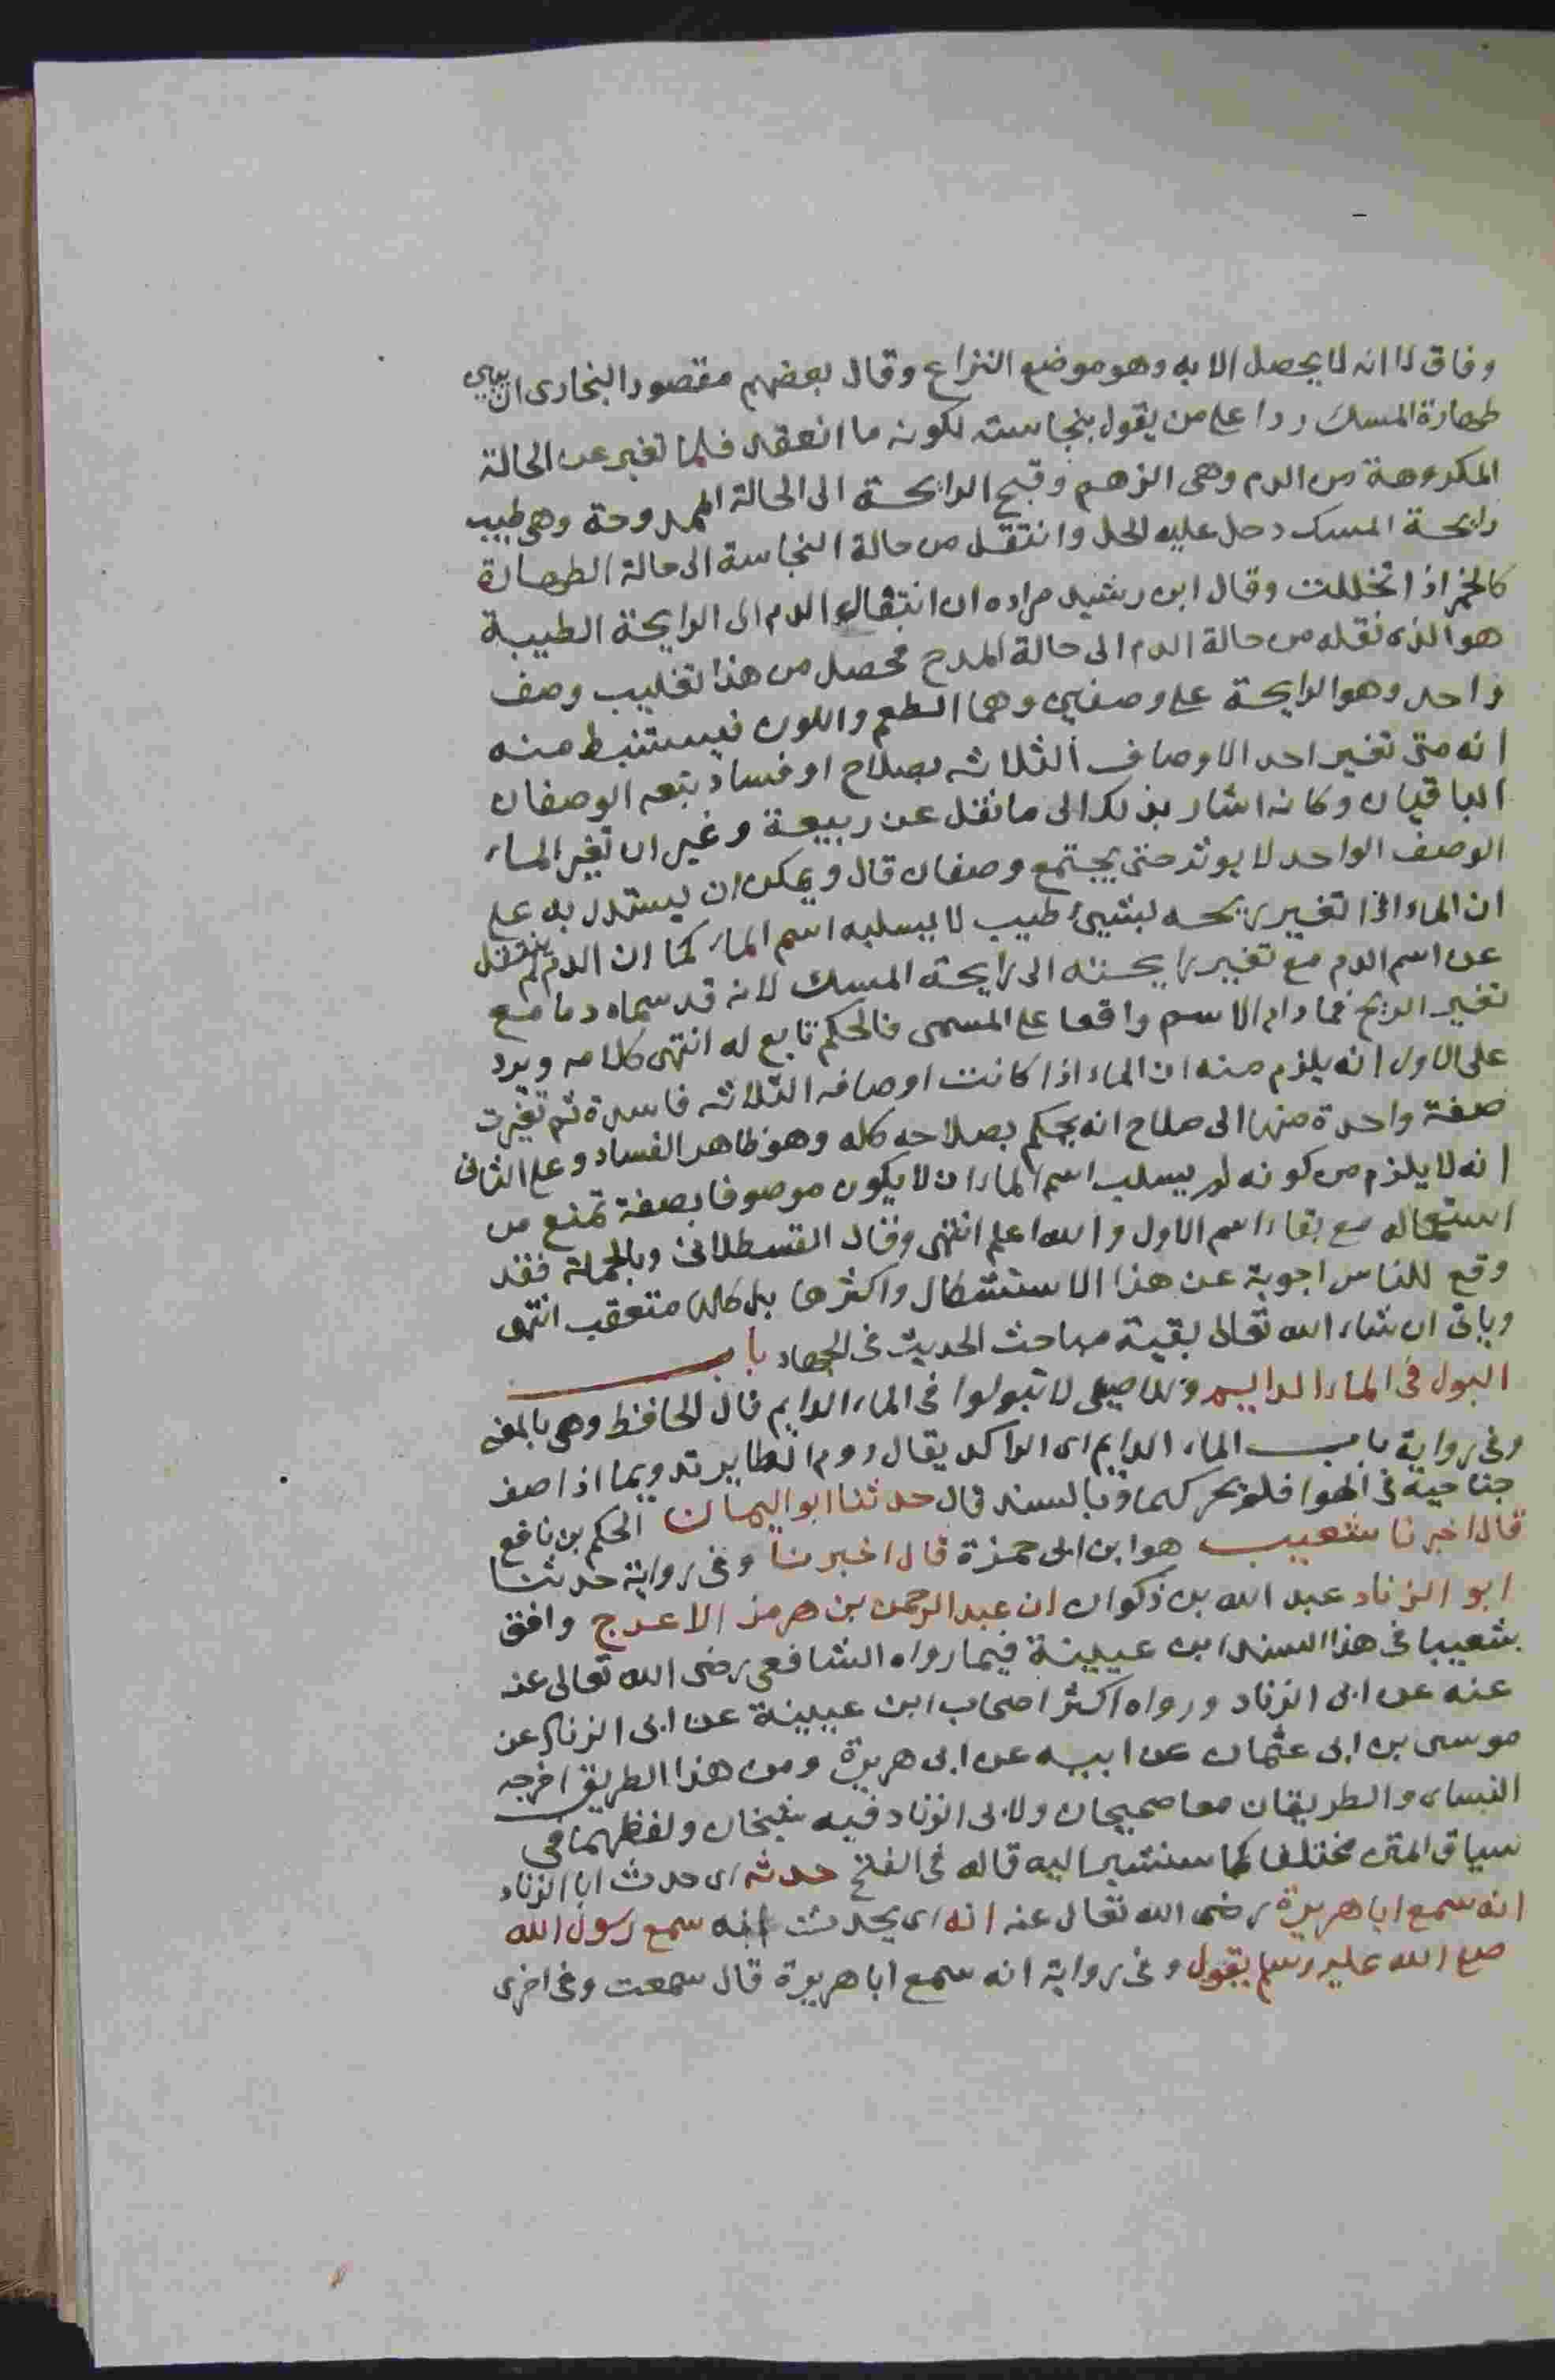 وفاق لا انه لا يحصل الا به وهو موضع النزاع وقال بعضهم مقصود البخارى ان يبين
طهارة المسك ردا على من يقول بنجاسته لكونه ما انعقد فلما تغير عن الحالة
المكروهة من الدم وهى الزهم وقبح الرايحة الى الحالة الممدوحة وهى طيب
رايحة المسك دخل عليه الحل وانتقل من حالة النجاسة الى حالة الطهارة
كالخمر اذا تخللت وقال ابن رشيد مراده ان انتقال الدم الى الرايحة الطيبة
هو الذى نقله من حالة الدم الى حالة المدح فحصل من هذا تغليب وصف
واحد وهو الرايحة على وصفين وهما الطعم واللون فيستنبط منه
انه متى تغير احد الاوصاف الثلاثه بصلاح او فساد تبعه الوصفان
الباقيان وكانه اشار بذلك الى ما نقل عن ربيعة وغير ان تغير الماء
الوصف الواحد لا يوثر حتى يجتمع وصفان قال ويمكن ان يستدل به على
ان الماء اذا تغير ريحه بشيئ طيب لا يسلبه اسم الماء كما ان الدم لم ينتقل
عن اسم الدم مع تغيير رايحته الى رايحة المسك لانه قد سماه دما مع
تغير الريح فما دام الاسم واقعا على المسمى فالحكم تابع له انتهى كلامه ويرد
على الاول انه يلزم منه ان الماء اذا كانت اوصافه الثلاثه فاسدة ثم تغيرت
صفة واحدة منها الى صلاح انه يحكم بصلاحه كله وهو ظاهر الفساد وعلى الثانى
انه لا يلزم من كونه لم يسلب اسم الماء ان لا يكون موصوفا بصفة تمنع من
استعماله مع بقاء اسم الاول والله اعلم انتهى وقال القسطلانى وبالجملة فقد
وقع للناس اجوبة عن هذا الاستشكال واكثرها بل كلها متعقب انتهى
وياتى ان شاء الله تعالى بقية مباحث الحديث فى الجهاد باب
البول فى الماء الدايم وللاصيلى لا تبولوا فى الماء الدايم قال الحافظ وهى بالمعنى
وفى رواية باب الماء الدايم اى الراكد يقال دوم الطاير تدويما اذا صف
جناحيه فى الهوا فلم يحركهما وبالسند قال حدثنا ابو اليمان الحكم بن نافع
قال اخبرنا شعيب هو ابن ابى حمزة قال اخبرنا وفى رواية حدثنا
ابو الزناد عبد الله بن ذكوان ان عبد الرحمن بن هرمز الاعرج وافق
شعيبا فى هذا السند ابن عيينة فيما رواه الشافعى رضى الله تعالى عنه
عنه عن ابى الزناد ورواه اكثر اصحاب ابن عيينة عن ابى الزناد عن
موسى بن ابى عثمان عن ابيه عن ابى هريرة ومن هذا الطريق اخرجه
النساى والطريقان معا صحيحان ولابى الزناد فيه شيخان ولفظهما فى
سياق المتن مختلف كما سنشير اليه قاله فى الفتح حدثه اى حدث ابا الزناد
انه سمع ابا هريرة رضى الله تعالى عنه انه اى يحدث انه سمع رسول الله
صلى الله عليه وسلم يقول وفى رواية انه سمع ابا هريرة قال سمعت وفى اخرى